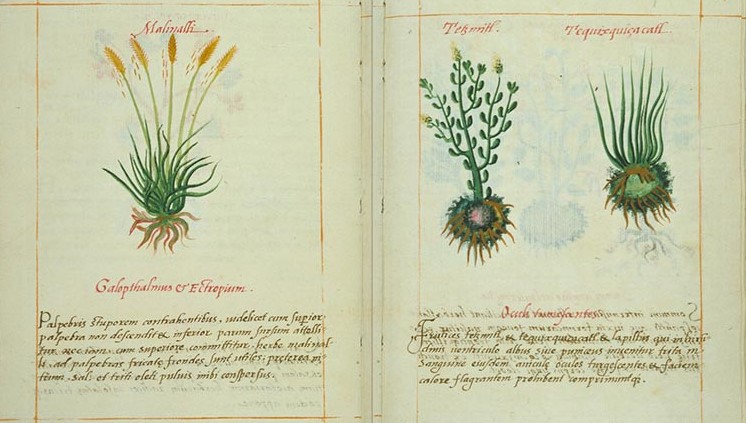 Malinalli.
Galopthalmus & Ectropium.
Palpebris stuporem contrahentibus, videlicet cum superior
palpebra non descendit & inferior parum sursum attolli
tur nec cum superiore committitur, herbe malinal
li ad palpebras fricatę frondes sunt utiles: preterea ni
trum, sal, et triti oleti pulvis inibi conspersus.
Tetzmitl. Tequixquiçacatl.
Oculi tumescentes.
Frutices tetzmitl, & tequixquiçacatl & lapillus qui in
ventriculo albus sive puniceus invenitur trita in
sanguine eiusdem avicule oculos turgescentes & faciem
calore flagrantem prohibent comprimuntq;.